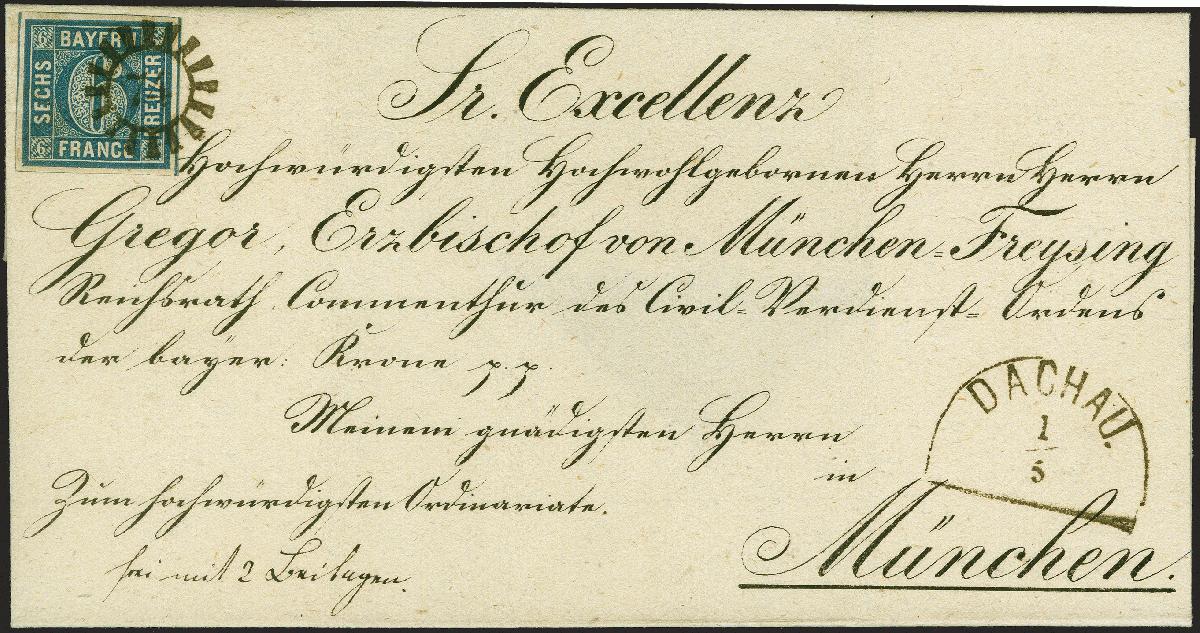 BAYERN
SECHS
KREUZER
FRANCO
6
6
6
Sr. Excellenz
Hochwürdigsten Hochwohlgebornen Herrn Herrn
Gregor, Erzbischof von München-Freysing
Reichsrath Commenthur des Civil-Verdienst-Ordens
der bayer: Krone p. p.
Meinem gnädigsten Herrn
in
München.
DACHAU.
1
5
Zum hochwürdigsten Ordinariate.
mit 2 Beilagen.